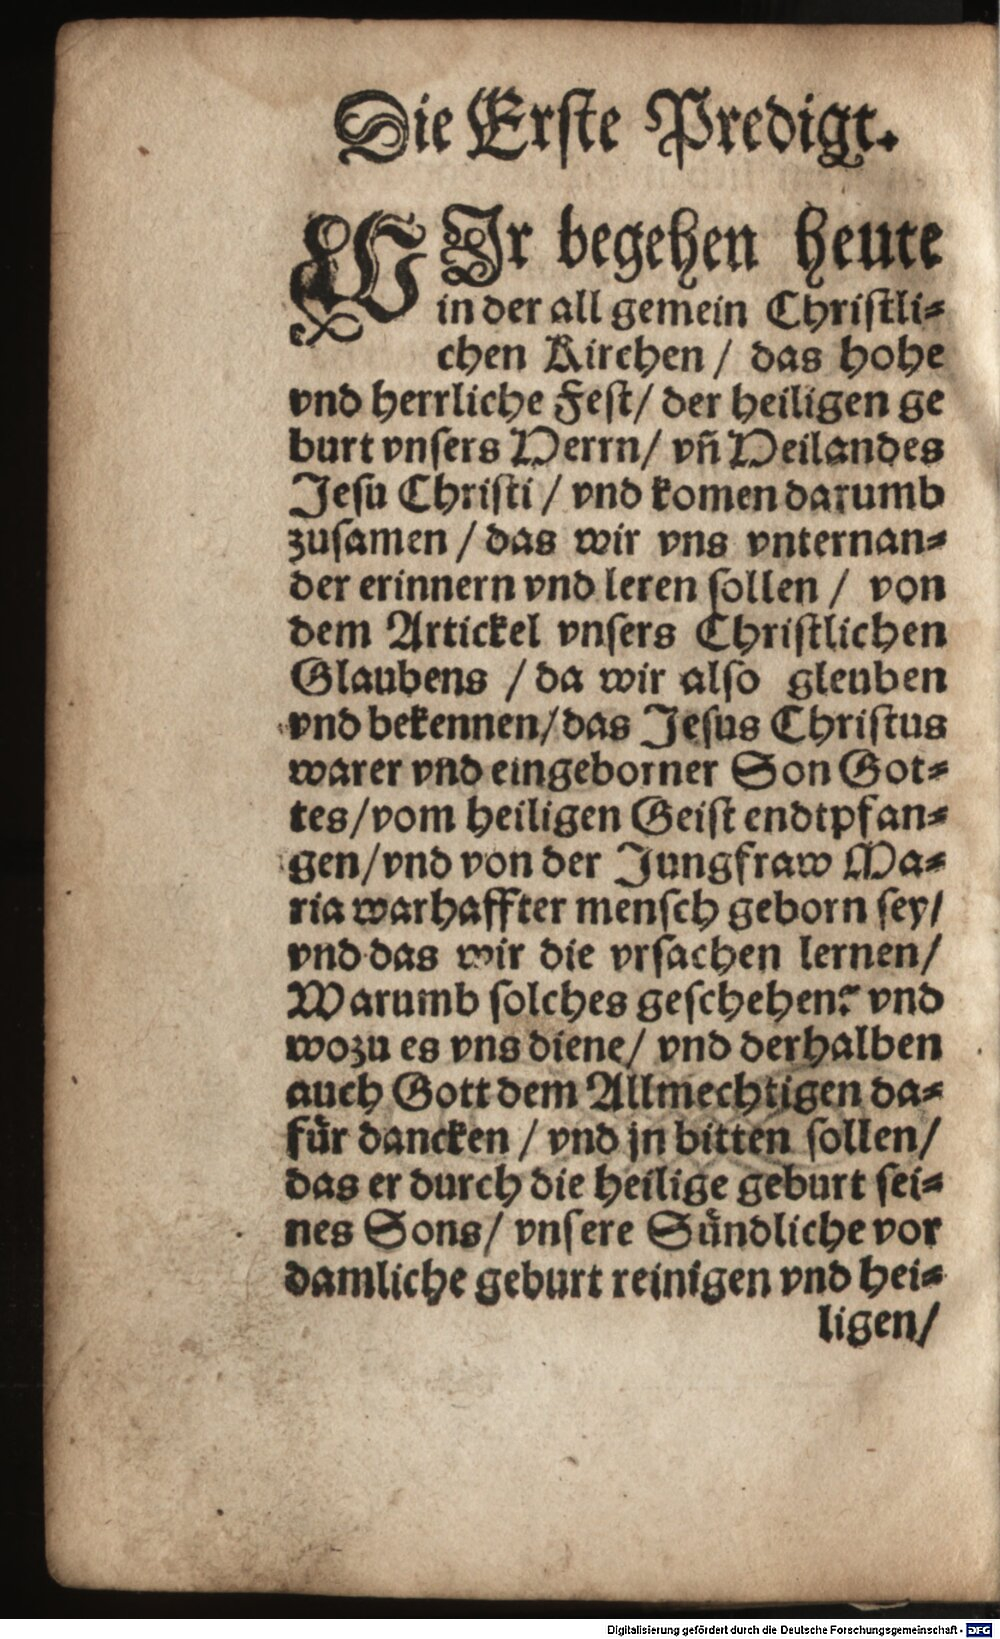 Die Erste Predigt.
WIr begehen heute
in der all gemein Christli⸗
chen Kirchen / das hohe
vnd herrliche Fest/ der heiligen ge
burt vnsers Herrn/ vñ Heilandes
Jesu Christi / vnd komen darumb
zusamen / das wir vns vnternan⸗
der erinnern vnd leren sollen / von
dem Artickel vnsers Christlichen
Glaubens / da wir also gleuben
vnd bekennen/ das Jesus Christus
warer vnd eingeborner Son Got⸗
tes/ vom heiligen Geist endtpfan⸗
gen/ vnd von der Jungfraw Ma⸗
ria warhaffter mensch geborn sey/
vnd das wir die vrsachen lernen/
Warumb solches geschehen? vnd
wozu es vns diene/ vnd derhalben
auch Gott dem Allmechtigen da⸗
für dancken / vnd jn bitten sollen/
das er durch die heilige geburt sei⸗
nes Sons/ vnsere Sündliche vor
damliche geburt reinigen vnd hei⸗
ligen/
Digitalisierung gefördert durch die Deutsche Forschungsgemeinschaft - DFG